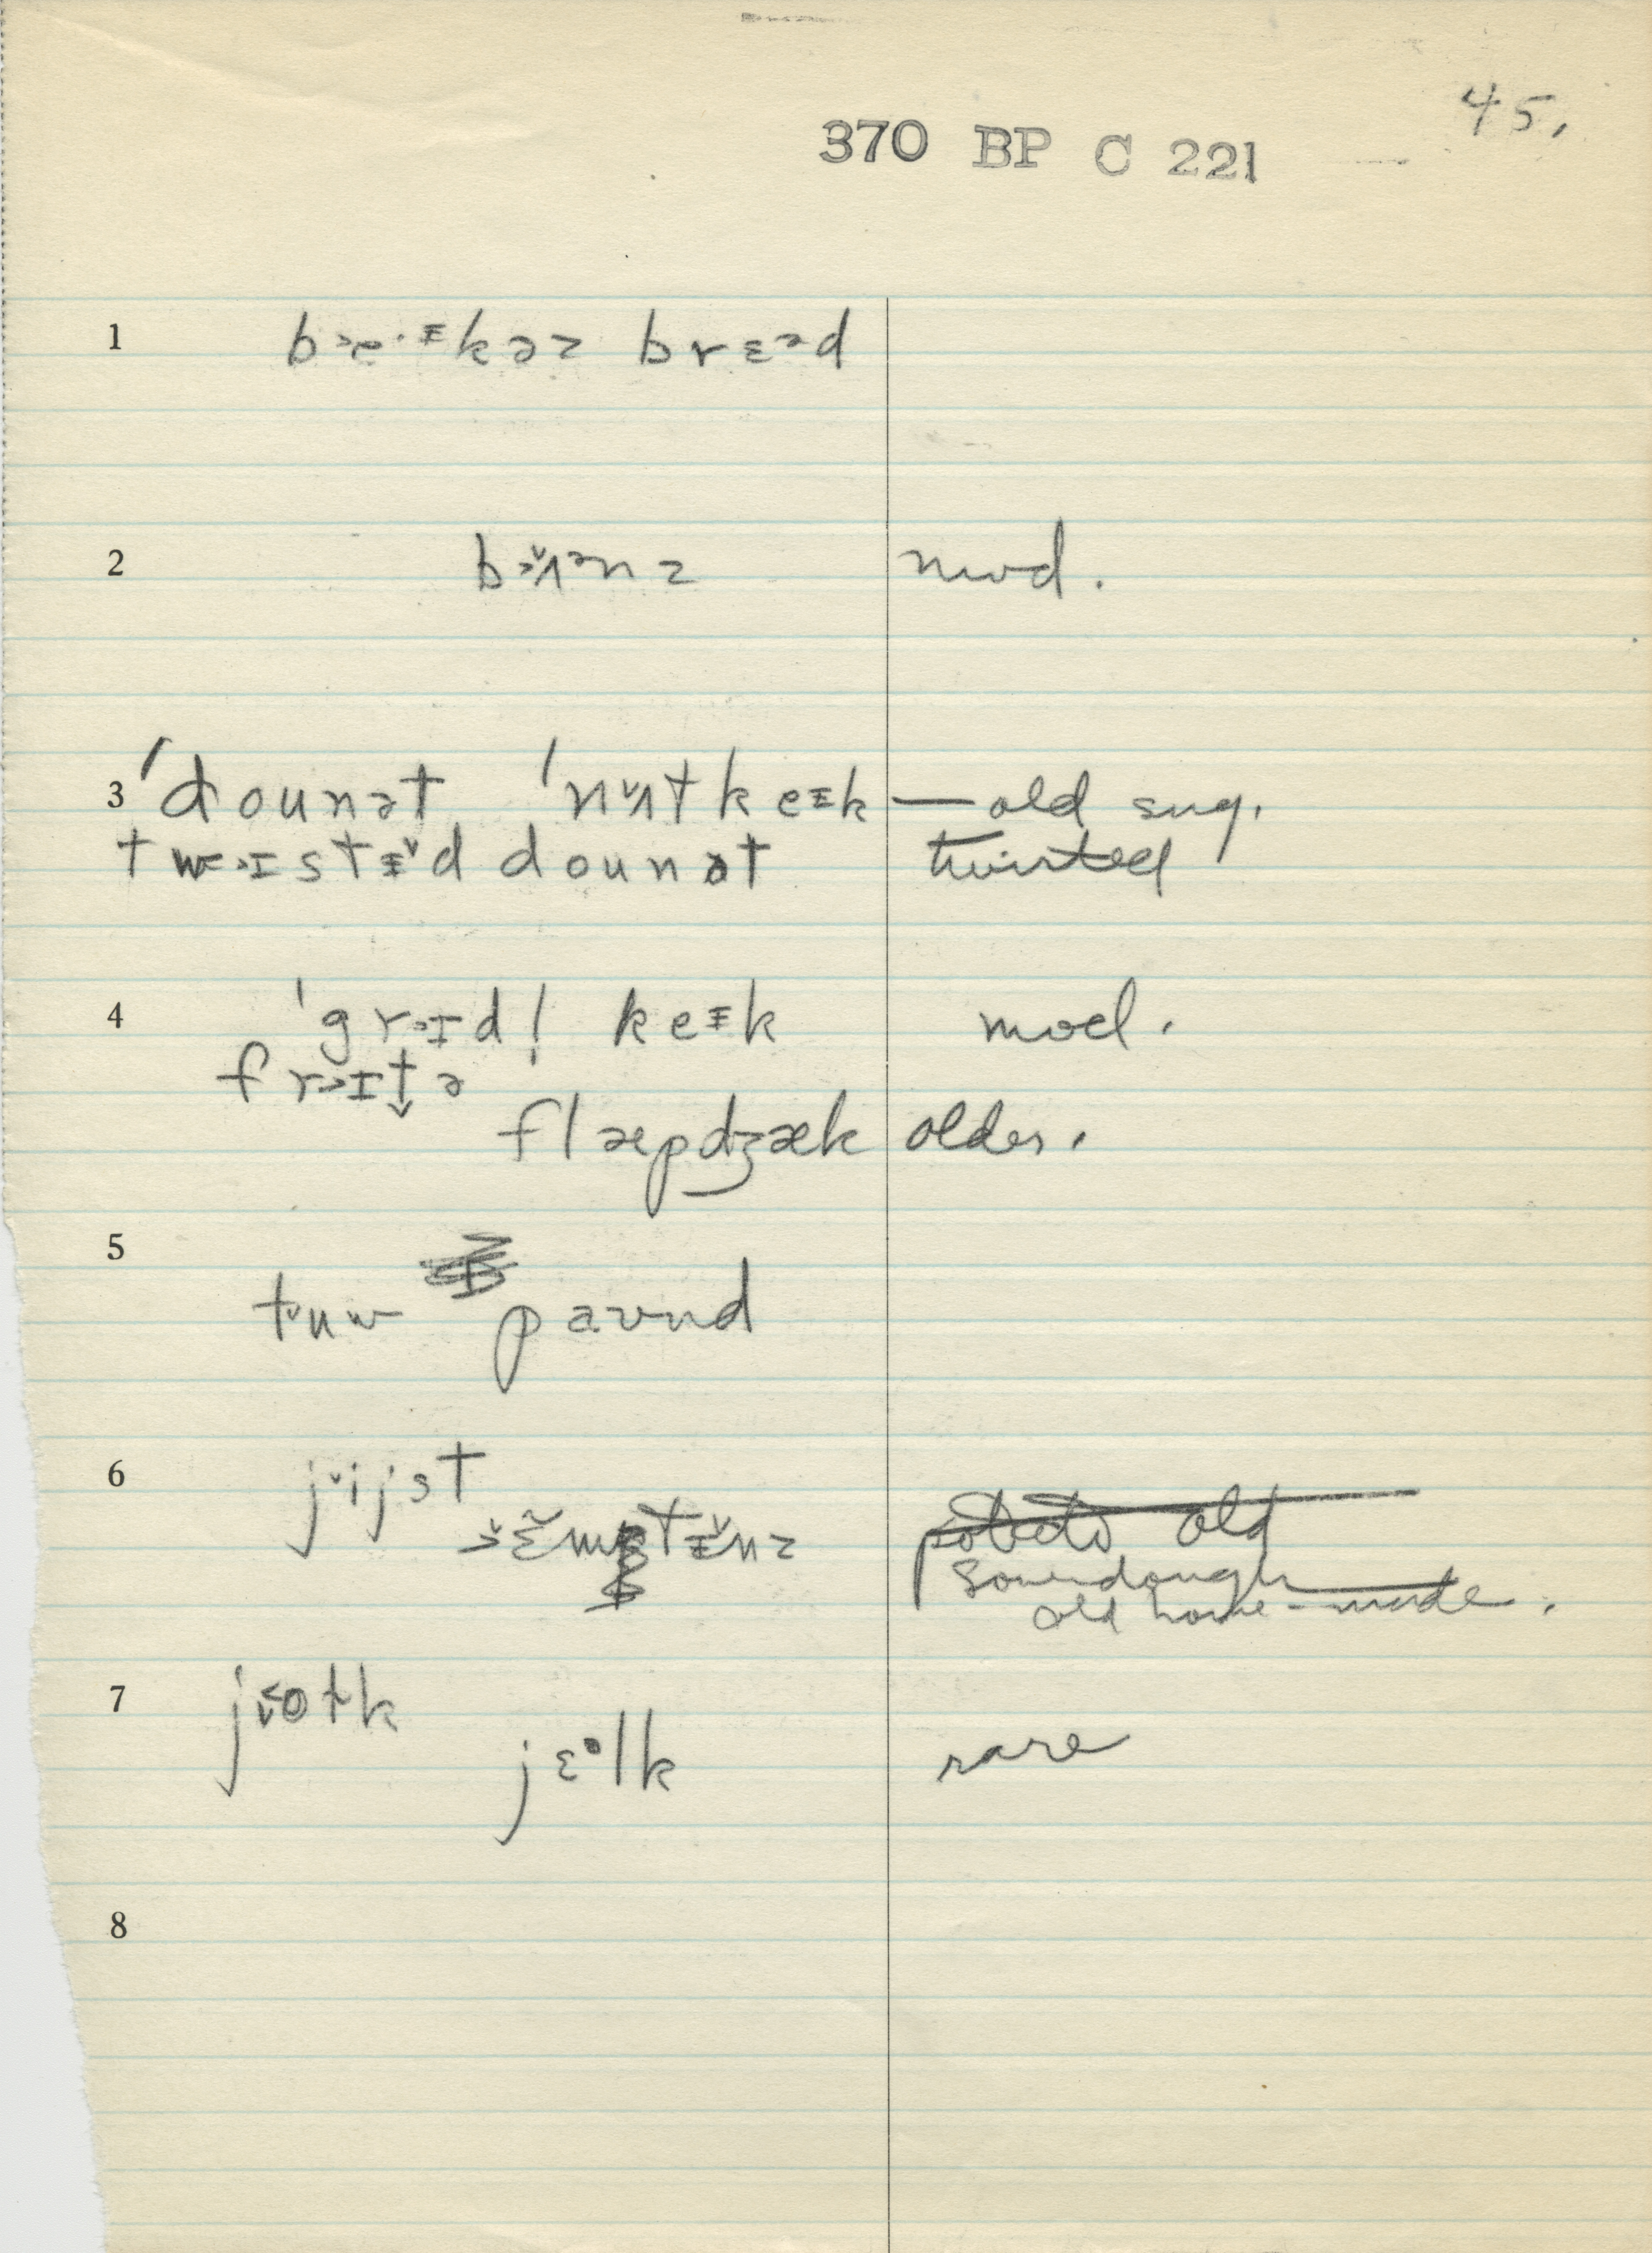 45.
370 BP C 221
1 b˃e·ᵻkəz brɛᵊd
2 b˃ʌ̌ᵊnz mod.
3 ˈdounət ˈnʌ̌tkeᵻk — old sug.
twɪstᵻ̌d dounət twisted
4 ˈgr˃ɪdl̩ keᵻk mod.
fr˃ɪt̬ə
flæpdʒæk older.
5
tʉw paʊnd
6 jˇijst
ɛ̃mptᵻ̌nz
Sourdough
old home-made.
7 jotk
jɛᵒlk rare
8